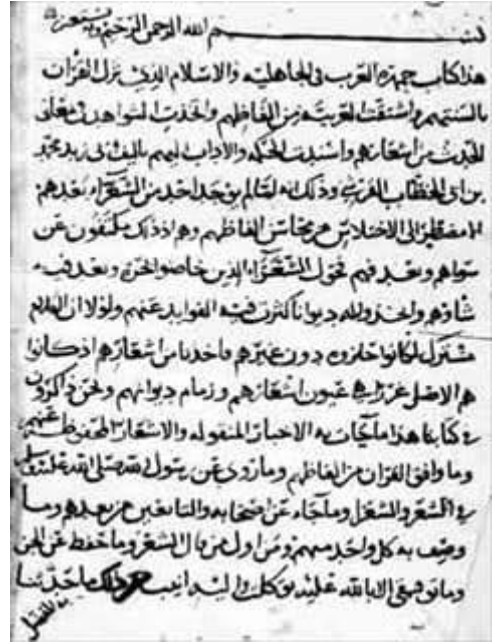 بسم الله الرحمن الرحيم وبه نستعين
هذا كتاب جمهرة العرب في الجاهليه والاسلام الذين نزل القران
بالسنتهم واشتقت العربيه من الفاظهم واتخذت الشواهد في معاني
الحديث من اشعارهم واسندت الحكمه والاداب اليهم تاليف ابي زيد محمد
بن ابي الخطاب القرشي وذلك انه لما لم يوجد احد من الشعراء بعدهم
الا مضطرا الى الاختلاس من محاسن الفاظهم وهم اذ ذاك مكتفون عن
سواهم وبعد فهم فحول الشعراء الذين خاضوا بحره وبعد فيه
شاؤهم واتخذوا له ديوانا كثرت فيه الفوايد عنهم ولولا ان الكلام
مشترك لكانوا حازوه دون غيرهم فاخذنا من اشعارهم اذ كانوا
هم الاصل غررا هي عيون اشعارهم وزمام ديوانهم ونحن ذاكرون
في كتابنا هذا ما جات به الاخبار المنقوله والاشعار المحفوظة عنهم
وما وافق القران من الفاظهم وما روي عن رسول الله صلى الله عليه وسلم
في الشعر والشعرا وما جاء عن اصحابه والتابعين من بعدهم وما
وصف به كل واحد منهم ومن اول من قال الشعر وما حفظ عن الجن
وما توفيقي الا بالله عليه توكلت واليه انيب فمن ذلك ما حدثنا
به المفضل